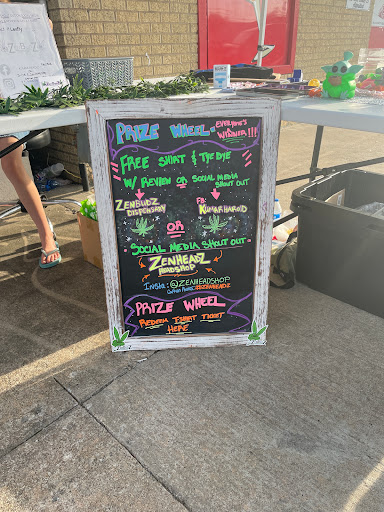 PRIZE WHEEL - EVERYONE'S A WINNER!!!
FREE SHIRT & TYE DYE
W/ REVIEW OR SOCIAL MEDIA SHOUT OUT
ZENBUDZ DISPENSARY
FB: KUMAR HAROLD
OR
SOCIAL MEDIA SHOUT OUT
ZENHEADZ
HEADSHOP
INSTA: @ZENHEADZHOP
PRIZE WHEEL
REDEEM EVENT TICKET
HERE